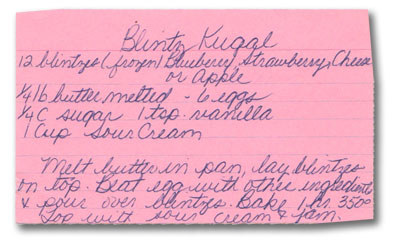 Blintz Kugal
12 blintzes (frozen) Blueberry, Strawberry, Cheese
or Apple
1/4 lb butter melted - 6 eggs
1/4 C sugar 1 tsp. vanilla
1 Cup Sour Cream
Melt butter in pan, lay blintzes
on top. Beat egg with other ingredients
& pour over blintzes. Bake 1 hr. 350°
Top with sour cream & jam.